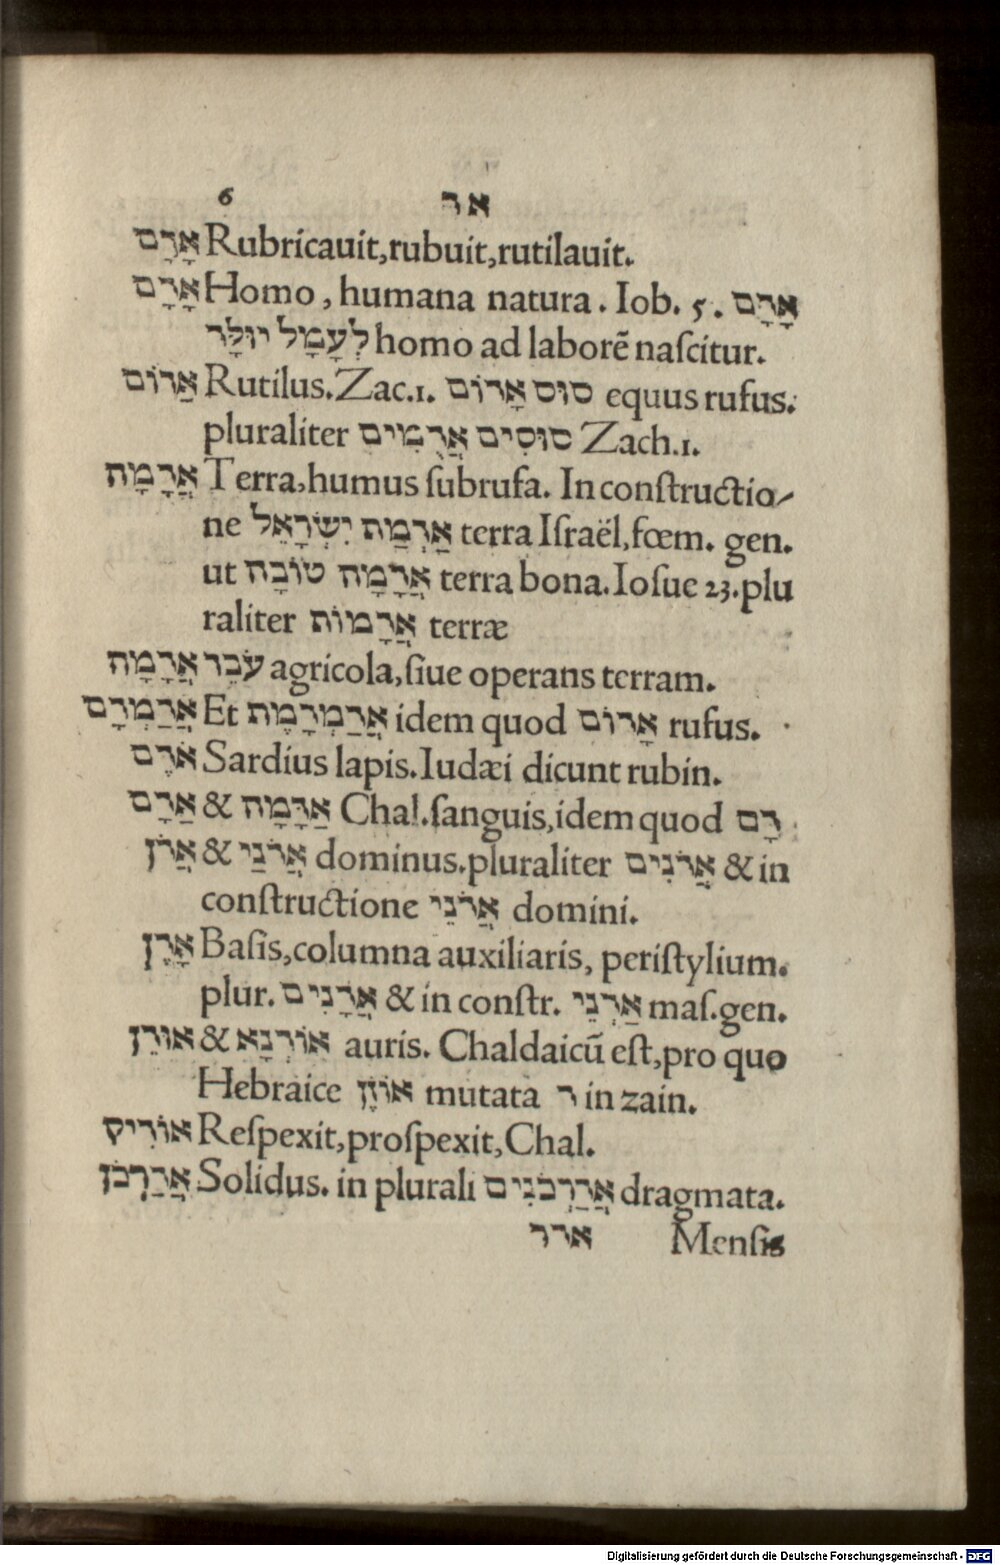 6 אד
אָדָם Rubricauit,rubuit,rutilauit.
אָדָם Homo, humana natura. Iob. 5. אָדָם
לְעָמָל יוּלָּד homo ad laborē naſcitur.
אָדוֹם Rutilus. Zac.1. סוּס אָדוֹם equus rufus.
pluraliter סוּסִים אֲדֻמִּים Zach.1.
אֲדָמָה Terra,humus ſubrufa. In conſtructio-
ne אַדְמַת יִשְׂרָאֵל terra Iſraël,fœm. gen.
ut אֲדָמָה טוֹבָה terra bona. Ioſue 23.plu
raliter אֲדָמוֹת terræ
עֹבֵד אֲדָמָה agricola,ſiue operans terram.
אֲדַמְדָּם Et אֲדַמְדָּמֶת idem quod אָדוֹם rufus.
אֹדֶם Sardius lapis. Iudæi dicunt rubin.
אַדָם & אַדָּמָה Chal.ſanguis,idem quod דָּם
אֲדֹן & אֲדֹנַי dominus.pluraliter אֲדֹנִים & in
conſtructione אֲדֹנֵי domini.
אָדֶן Baſis,columna auxiliaris, periſtylium.
plur. אֲדָנִים & in conſtr. אַדְנֵי maſ.gen.
אוּדֵן & אוֹדְנָא auris. Chaldaicū eſt,pro quo
Hebraice אוֹזֶן mutata ד in zain.
אוֹדִיק Reſpexit,proſpexit,Chal.
אֲדַרְכֹן Solidus. in plurali אֲדַרְכֹנִים dragmata.
אדר Menſis
Digitalisierung gefördert durch die Deutsche Forschungsgemeinschaft - DFG